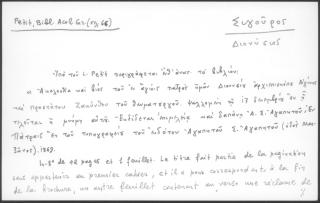 Petit, Bibl. Acol.
Συγούρος
Διονύσιος
Ὑπὸ τοῦ L. Petit περιγράφεται τὸ βιβλίον:
« Ἀκολουθία καὶ βίος τοῦ ἐν ἁγίοις πατρὸς ἡμῶν Διονυσίου ἀρχιεπισκόπου Αἰγίνης
καὶ προστάτου Ζακύνθου τοῦ θαυματουργοῦ. ψαλλομένη τῇ 17 δεκεμβρίου ὅτε
τελεῖται ἡ μνήμη αὐτοῦ. Ἐκδίδεται καὶ δαπάνῃ Α. Σ. Ἀγαπητοῦ. Ἐν
Πάτραις ἐκ τοῦ τυπογραφείου τοῦ ἐκδότου Ἀγαπητοῦ Σ. Ἀγαπητοῦ (ὁδὸς
1869.
4-8° de 42 pages et 1 feuillet. Le titre fait partie de la pagination
sans appartenir au premier cahier, et il a pour correspondant, à la fin
de la brochure, un autre feuillet contenant au verso une réclame de